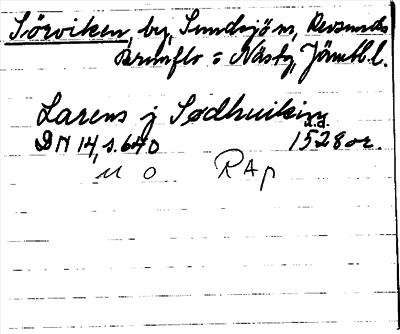 Sörviken, by, Sundsjö sn, Revsunds
Brunflo o Näs tg, Jämtl. l.
Larens j Sødhuiking
DN 14, s. 640 1528 or.
u.d.
u o RAp